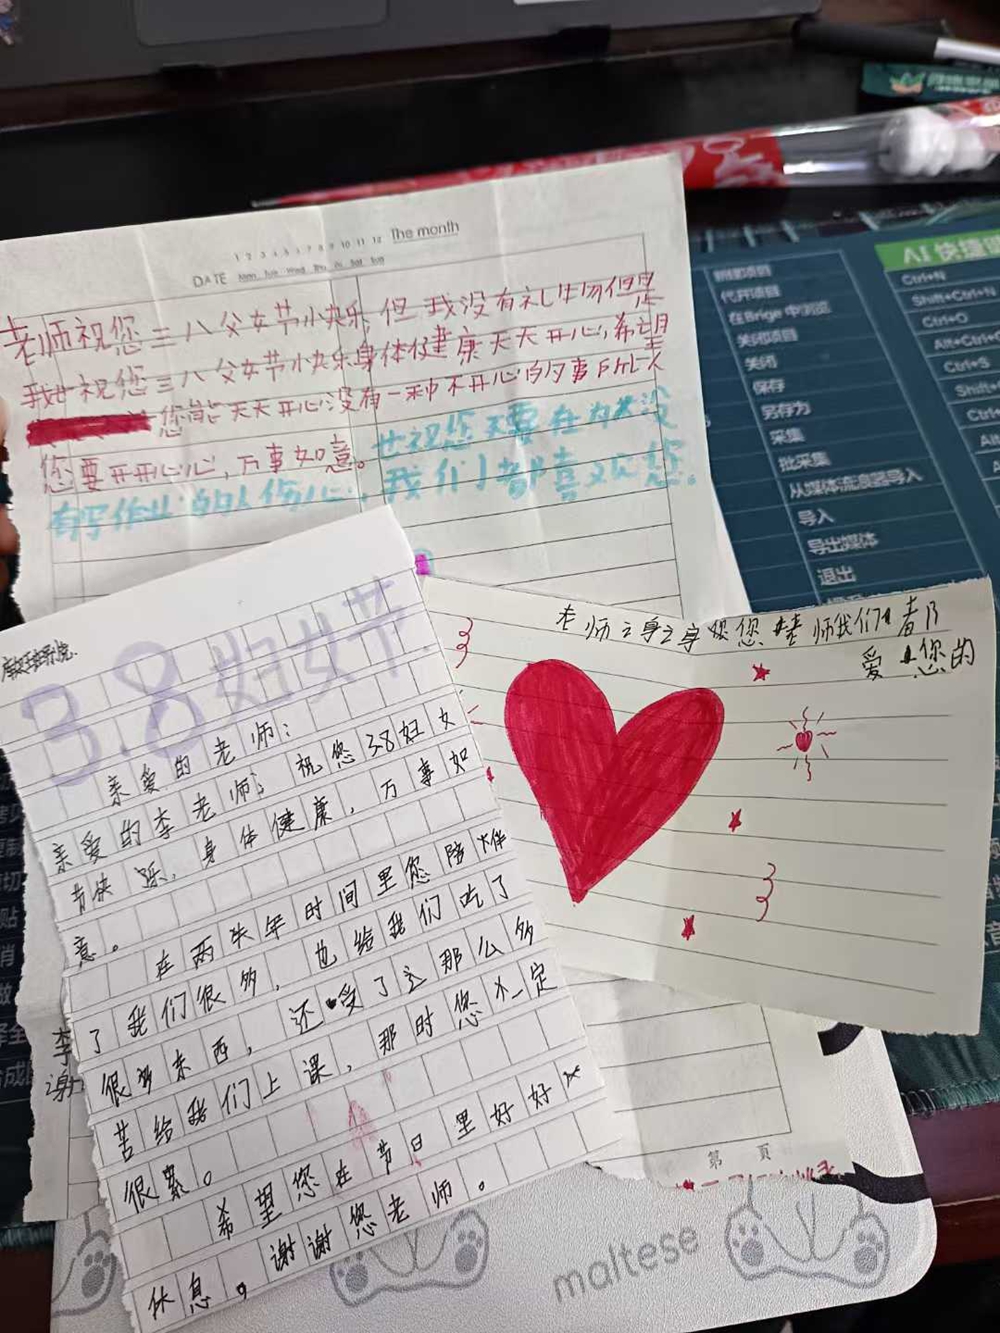 The month
1 2 3 4 5 6 7 8 9 10 11 12
DATE Mon Tue Wed Thu Fri Sat Sun
老师祝您三八父女节小快乐，但我没有礼牛物但是
我世祝您三八父女节小快乐身体健康天天开心，希望
您能天天开心没有一种不开心的事所以
您要开开心心，万事如意。也祝您不要在为没
有写作业的人伤心，我们都喜欢您。
3.8妇女节
亲爱的老师：
亲爱的李老师，祝您38妇女
节快乐，身体健康，万事如
意。
在两年时间里您陪伴
了我们很多，也给我们吃了
很多东西，还受了这那么多
苦给我们上课，那时您一定
很累。
希望您在节日里好好
休息。谢谢您老师。
李
谢
老师们我们都
爱您的
第 页
maltese
AI 快捷
新建项目
代开项目
在Brige中浏览
关闭项目
关闭
保存
另存为
采集
批采集
从媒体流浪器导入
导入
导出媒体
退出
Ctrl+N
Shift+Ctrl+N
Ctrl+O
Alt+Ctrl+
Ctrl+S
Shift+
Ctrl+